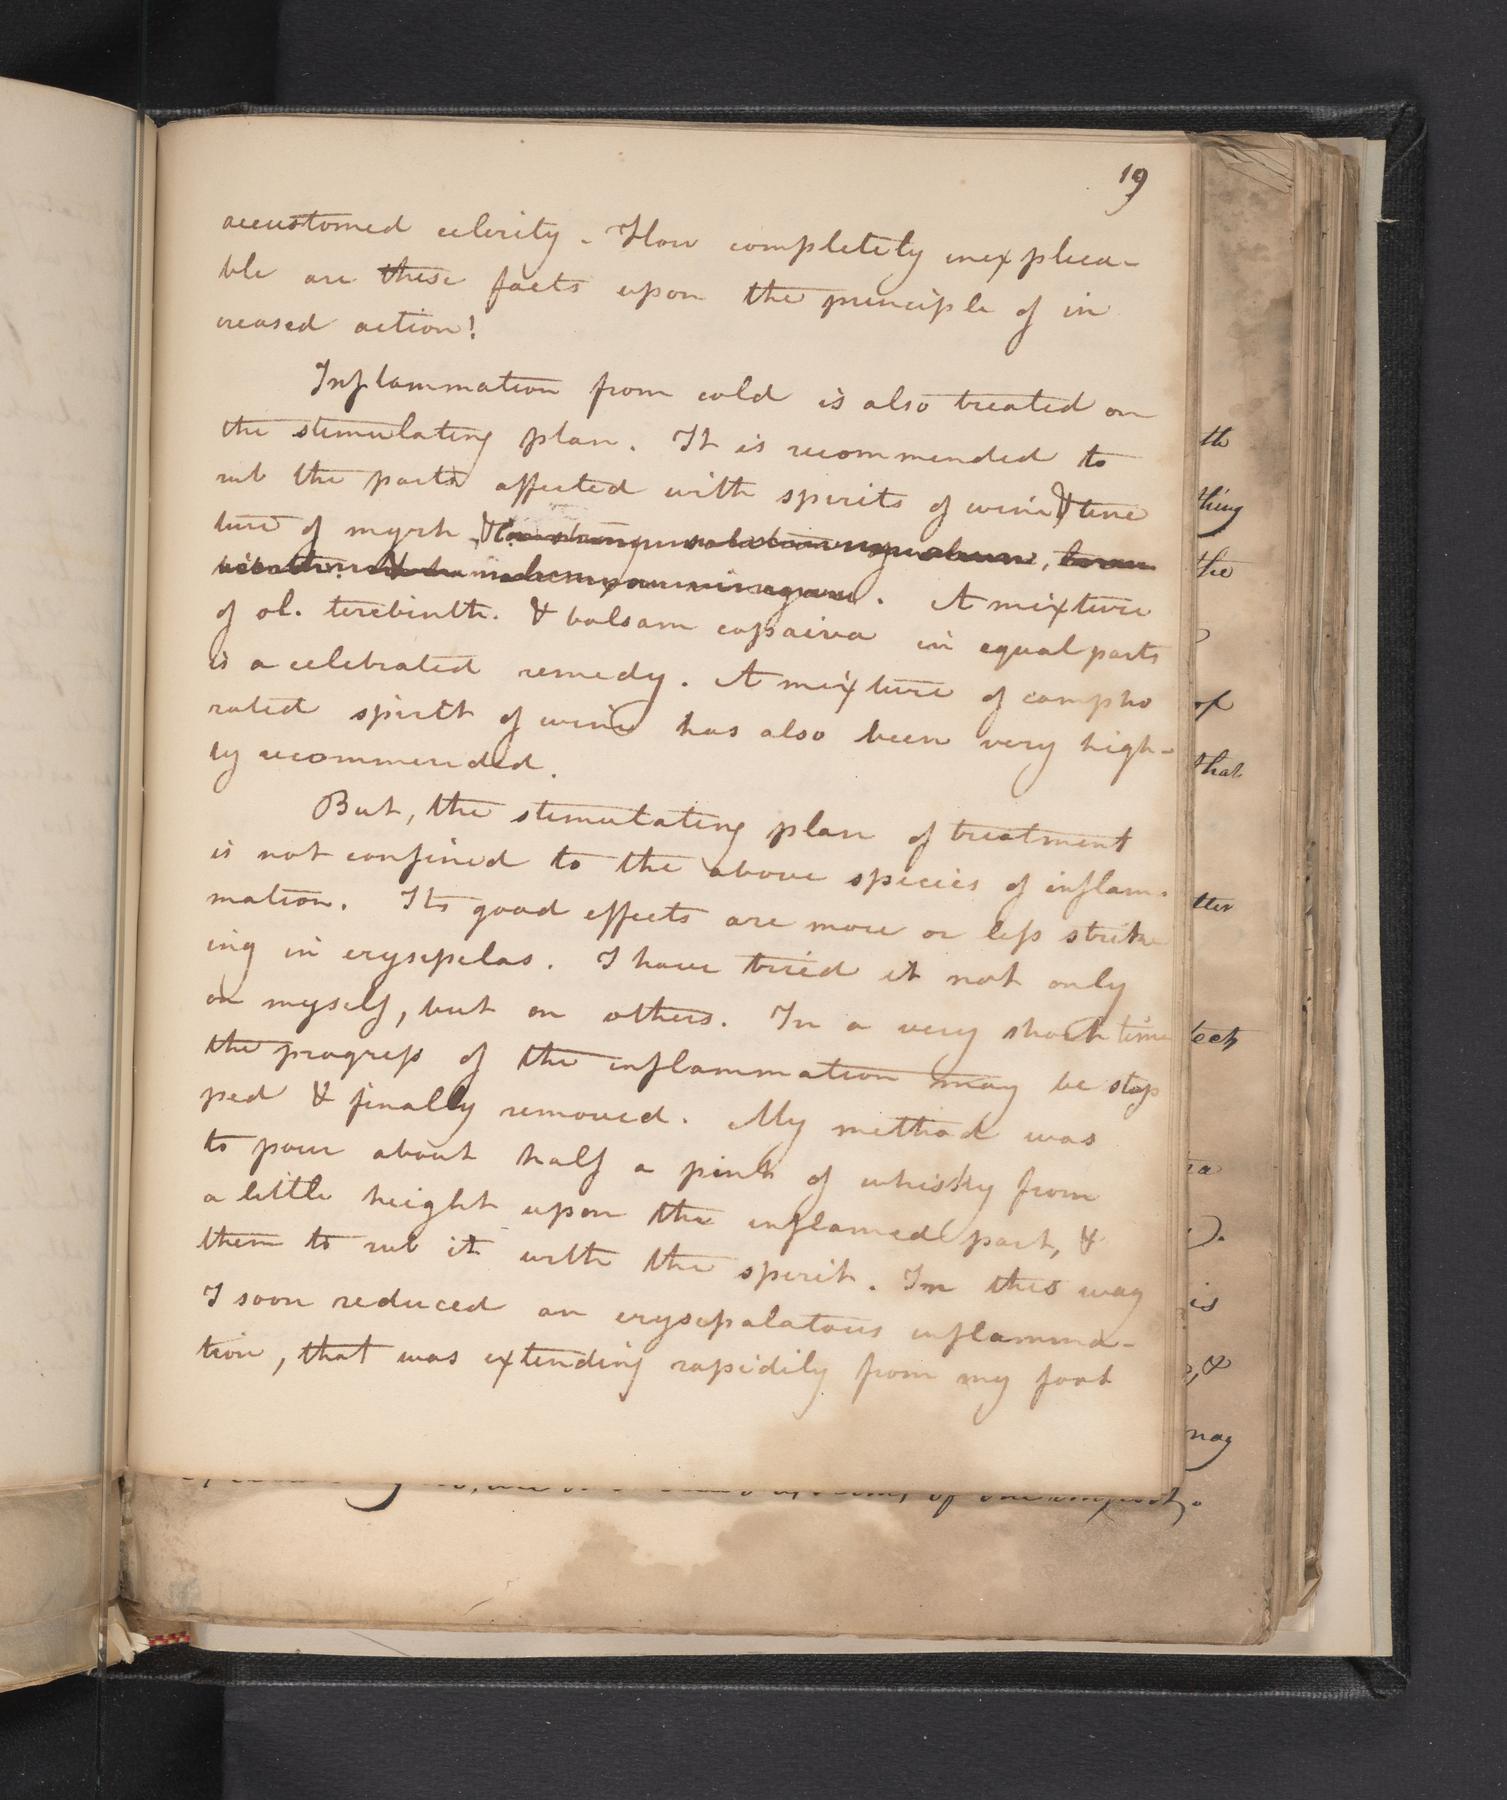 19
accustomed celerity. How completely inexplica-
ble are these facts upon the principle of in
creased action!
Inflammation from cold is also treated on
the stimulating plan. It is recommended to
rub the parts affected with spirits of wine & tinc
ture of myrh
. A mixture
of ol. terebinth. & balsam copaiva in equal parts
is a celebrated remedy. A mixture of campho
rated spirit of wine has also been very high-
ly recommended.
But, the stimulating plan of treatment
is not confined to the above species of inflam-
mation. Its good effects are more or less strik
ing in erysipelas. I have tried it not only
on myself, but on others. In a very short time
the progress of the inflammation may be stop
ped & finally removed. My method was
to pour about half a pint of whisky from
a little height upon the inflamed part, &
then to rub it with the spirit. In this way
I soon reduced an erysipalatous inflamma-
tion, that was extending rapidily from my foot
th
thing
the
of
that
tter
is
, &
may